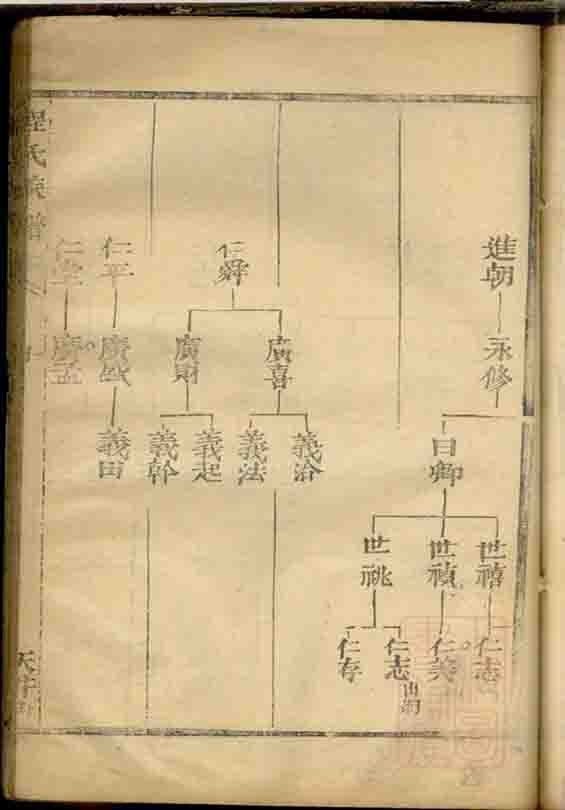 進朝
永修
曰卿
世禧
世禎
世祧
仁志
仁美
仁志
出嗣
仁存
仁舜
廣喜
廣財
義治
義法
義起
義幹
仁平
義田
仁堂
廣孟
程氏族譜